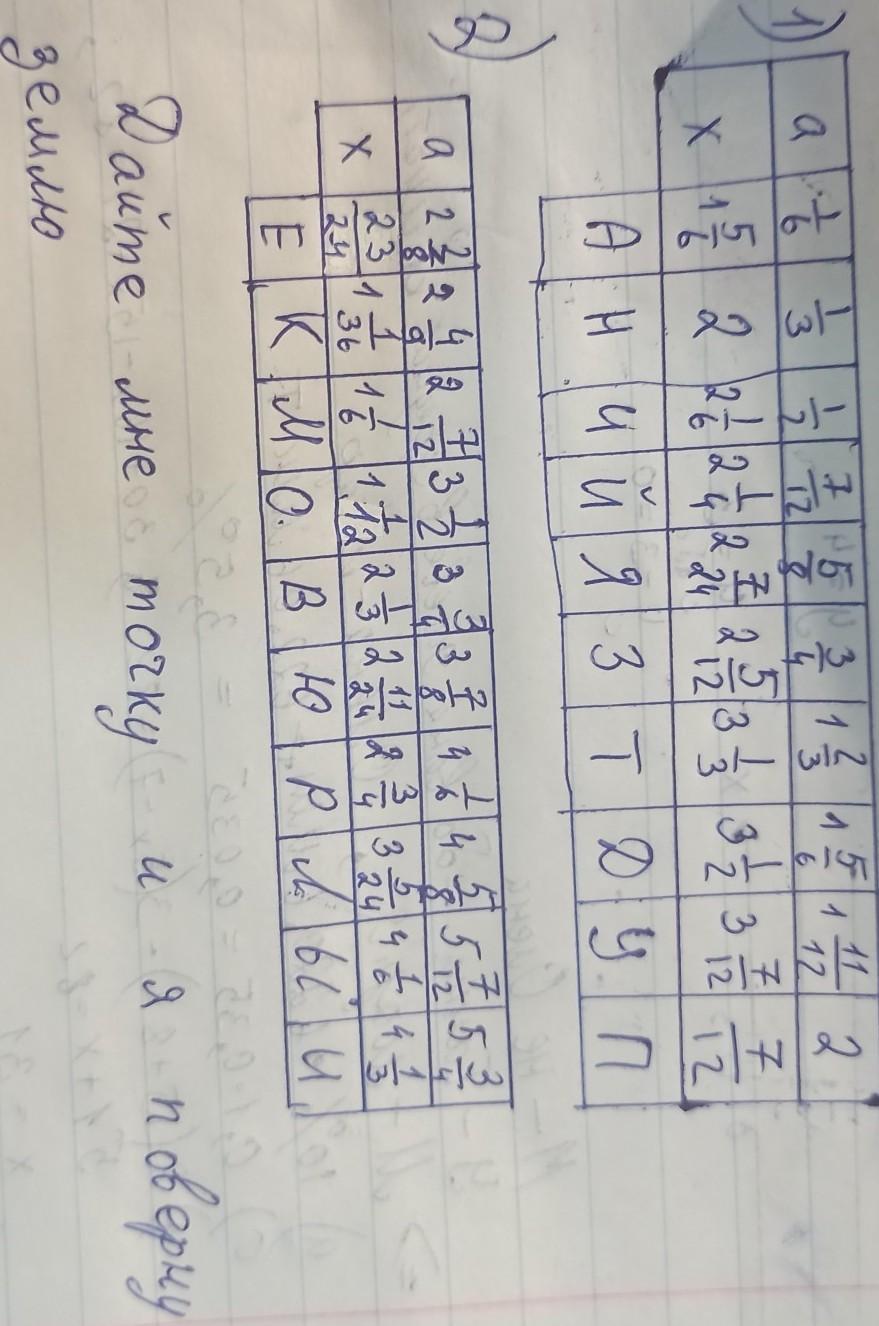 1)
a 1/6 1/3 1/2 7/12 5/8 3/4 1 2/3 1 5/6 1 11/12 2
x 1 5/6 2 2 1/6 2 1/4 2 7/24 2 5/12 3 1/3 3 1/2 3 7/12 7/12
А Н И Й Я З Т Д У П
2)
a 2 3/8 2 4/9 2 7/12 3 1/2 3 3/4 3 7/8 4 1/6 4 5/8 5 7/12 5 3/4
x 23/24 1 1/36 1 1/6 1 1/12 2 1/3 2 11/24 2 3/4 3 5/24 4 1/6 4 1/3
Е К М О В Ю Р Л Ы И
Дайте мне точку и я поверну
землю